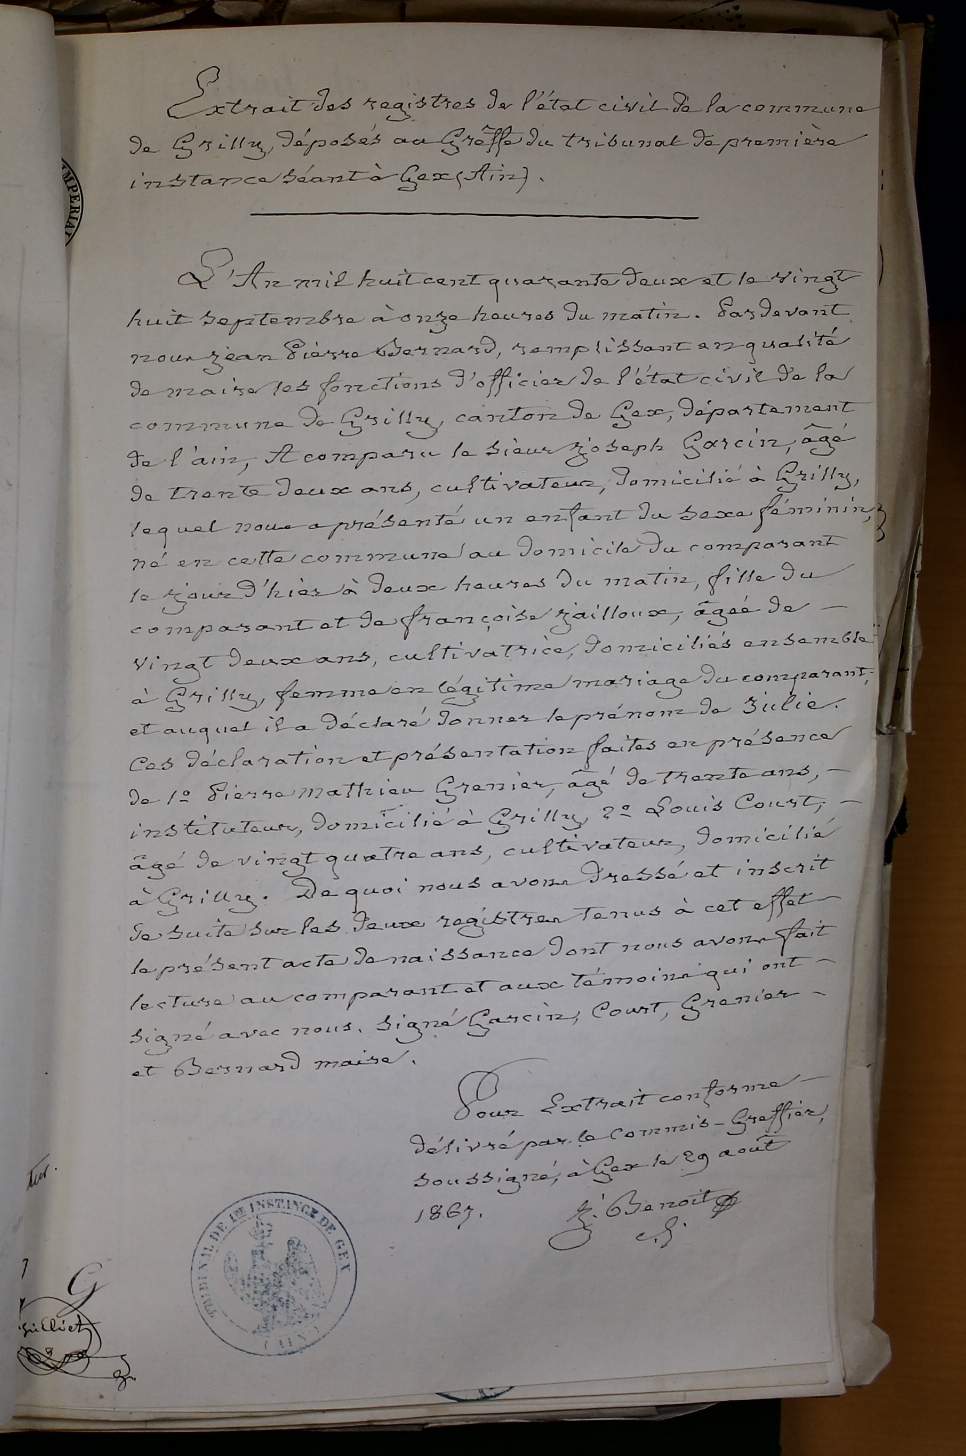 Extrait des registres de l'état civil de la commune
de Grilly, déposés au Greffe du tribunal de première
instance séant à Gex (Ain).
IMPERIAL
L'An mil huit cent quarante deux et le vingt
huit septembre à onze heures du matin. Pardevant
nous Jean Pierre Bernard, remplissant en qualité
de maire les fonctions d'officier de l'état civil de la
commune de Grilly, canton de Gex, département
de l'ain, A comparu le sieur Joseph Garcin, âgé
de trente deux ans, cultivateur, domicilié à Grilly,
lequel nous a présenté un enfant du sexe féminin,
né en cette commune au domicile du comparant
le jour d'hier à deux heures du matin, fille du
comparant et de françoise Jailloux, âgée de -
vingt deux ans, cultivatrice, domiciliés ensemble
à Grilly, femme en légitime mariage du comparant;
et auquel il a déclaré donner le prénom de Julie.
Ces déclaration et présentation faites en présence
de 1º Pierre Mathieu Grenier, âgé de trente ans, -
instituteur, domicilié à Grilly, 2º Louis Court, -
âgé de vingt quatre ans, cultivateur, domicilié
à Grilly. De quoi nous avons dressé et inscrit
de suite sur les deux registres tenus à cet effet
le présent acte de naissance dont nous avons fait
lecture au comparant et aux témoins qui ont -
signé avec nous. signé Garcin, Court, Grenier -
et Bernard maire.
Pour Extrait conforme -
délivré par le Commis-Greffier,
soussigné, à Gex le 29 août
1867.
J. Benoit
TRIBUNAL DE 1re INSTANCE DE GEX
(AIN)
G